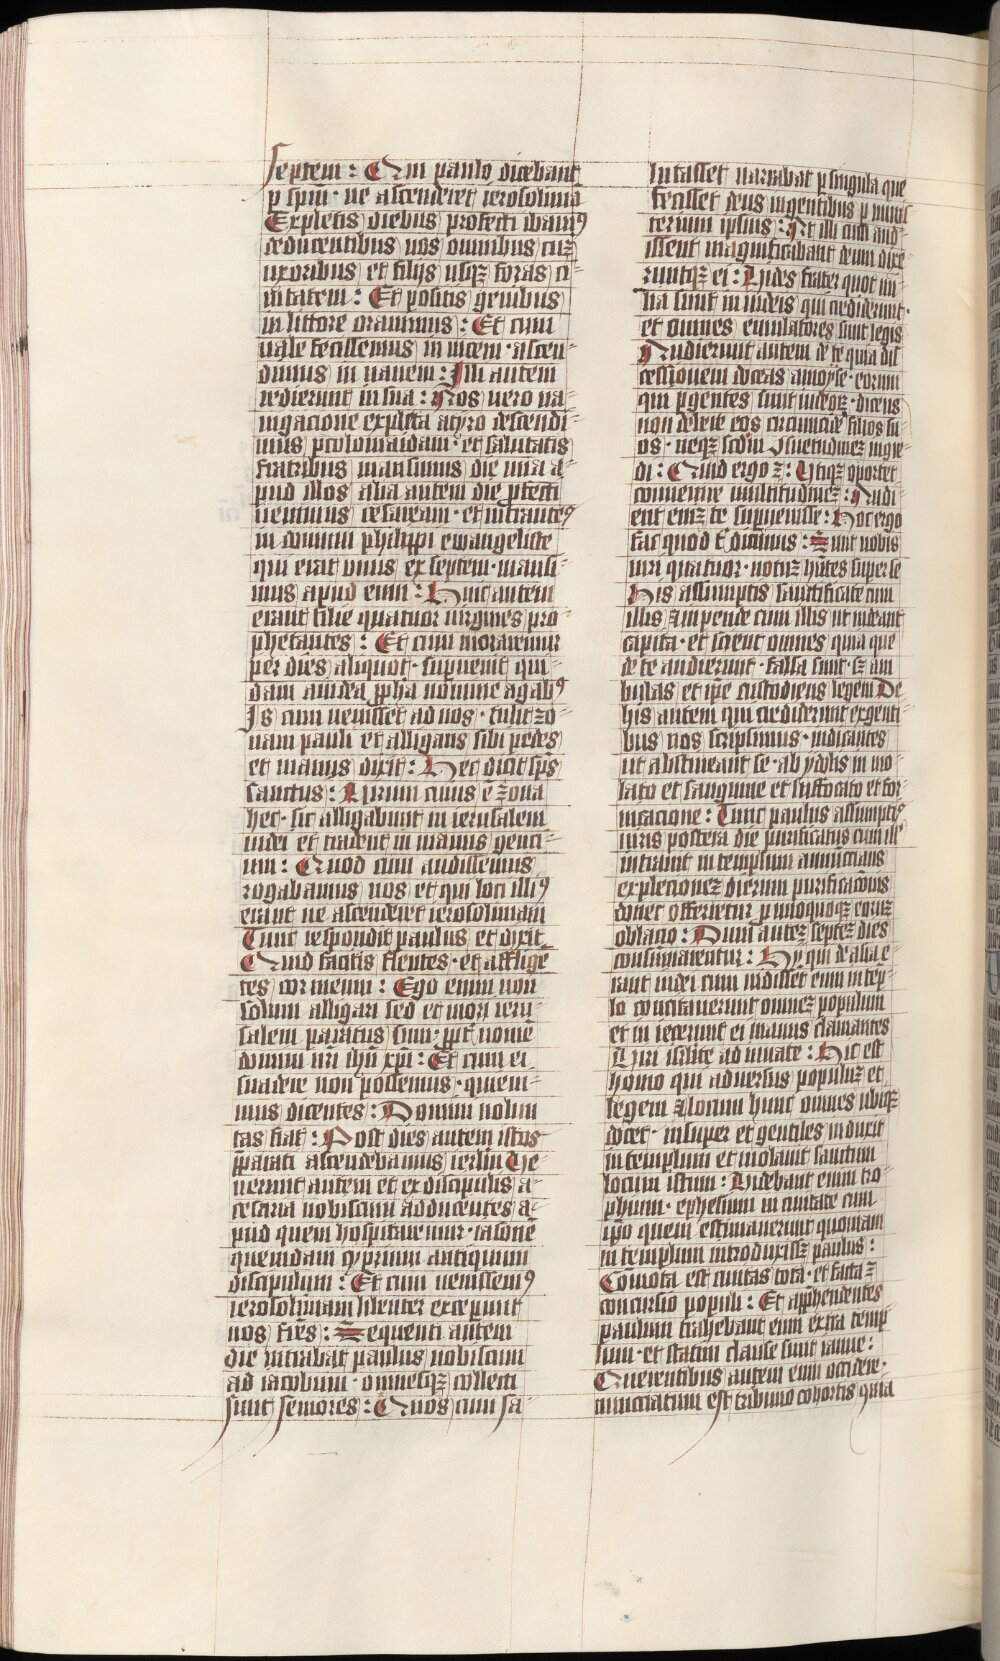 septem : Qui paulo dicebant
p spm · ne ascenderet ierosolimā
Expletis diebus profecti ibamꝰ
deducentibus nos omnibus cuꝫ
uxoribus et filijs usqꝫ foras ci⸗
uitatem : Et positis genibus
in littore orauimus : Et cum
uale fecissemus in uicem · ascen⸗
dimus in nauem : Illi autem
redierunt in sua : Nos uero na⸗
uigacione expleta atyro descendi⸗
mus ptolomaidam · et salutatis
fratribus mansimus die una a⸗
pud illos alia autem die pfecti
uenimus cesaream · et intrantes
in domum philippi ewangeliste
qui erat unus ex septem · mansi⸗
mus apud eum : Huic autem
erant filie quatuor uirgines pro⸗
phetantes : Et cum moraremur
per dies aliquot · supuenit qui⸗
dam aiudea ppha nomine agabꝰ
Is cum uenisset ad nos · tulit zo⸗
nam pauli et alligans sibi pedes
et manus dixit : Hec dicit sps
sanctus : Uirum cuius ē zona
hec · sic alligabunt in ierusalem
iudei et tradent in manus genci⸗
um : Quod cum audissemus
rogabamus nos et qui loci illiꝰ
erant ne ascenderet ierosolimam
Tunc respondit paulus et dixit
Quid facitis flentes · et affligē⸗
tes cor meum : Ego enim non
solum alligari sed et mori ieru⸗
salem paratus sum · ppt nomē
domini nri ihu xpi : Et cum ei
suadere non possemus · quieui⸗
mus dicentes : Domini uolun
tas fiat : Post dies autem istos
pparati ascendebamus ierlm Ue⸗
nerunt autem et ex discipulis a⸗
cesaria nobiscum adducentes a⸗
pud quem hospitaremur · iasonē
quendam cyprium antiquum
discipulum : Et cum uenissemꝰ
ierosolimam libenter exceperunt
nos fres : Sequenti autem
die intrabat paulus nobiscum
ad iacobum · omnesqꝫ collecti
sunt seniores : Quos cum sa⸗
lutasset narrabat p singula que
fecisset deus ingentibus p minis⸗
terium ipsius : At illi cum aud⸗
issent magnificabant deum dixe⸗
runtqꝫ ei : Uides frater quot mi⸗
lia sunt in iudeis qui crediderunt ·
et omnes emulatores sunt legis
Audierunt autem de te quia dis⸗
cessionem doceas amoyse · eorum
qui p gentes sunt iudeoꝝ · dicens
non debere eos circumcide filios su⸗
os · neqꝫ scdm 9suetudineꝫ ingre⸗
di : Quid ergo ē : Utiqꝫ oportet
conuenire multitudineꝫ : Audi⸗
ent enīꝫ te supuenisse : Hoc ergo
fac quod t dicimus : Sunt nobis
uiri quatuor · notuꝫ hntes super se
His assumptis sanctifica te cum
illis ⁊ inpende cum illis ut radant
capita · et scient omnes quia que
de te audierunt · falsa sunt · sꝫ am⸗
bulas et ipe custodiens legem De
his autem qui crediderunt exgenti⸗
bus nos scripsimus · iudicantes
ut abstineant se · ab ydolis in mo⸗
lato et sanguine et suffocato et for⸗
nicacione : Tunc paulus assumptꝭ
uiris postera die purificatus cum ill
intrauit in templum annuncians
explecioneꝫ dierum purificacōnis
donec offerretur p unoquoqꝫ eoruꝫ
oblatio : Dum auteꝫ septeꝫ dies
consummarentur : Hij qui de asia e⸗
rant iudei cum uidissēt eum in tēp⸗
lo concitauerunt omneꝫ populum
et in iecerunt ei manus clamantes
Uiri israhelite adiuuate : Hic est
homo qui aduersus populuꝫ et
legem ⁊ locum hunc omnes ubiqꝫ
docet · insuper et gentiles induxit
in templum et uiolauit sanctum
locum istum : Uiderant enim tro⸗
phimum · ephesium in ciuitate cum
ipo quem estimauerunt quoniam
in templum introduxissꝫ paulus :
Cōmota est ciuitas tota · et facta ē
concursio populi : Et apphendentes
paulum trahebant eum extra temp⸗
lum · et statim clause sunt ianue :
Querentibus autem eum occidere ·
nunciatum est tribuno cohortis quia